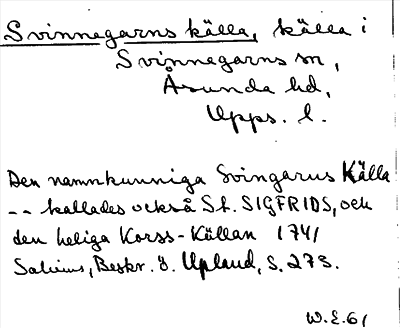 Svinnegarns källa, källa i
Svinnegarns sn,
Åsunda hd,
Upps. l.
Den namnkunniga Svingarus Källa
-- kallades också St. SIGFRIDS, och
den heliga Korss-Källan 1741
Salvius, Beskr. ö. Upland, S. 273.
W.E.61